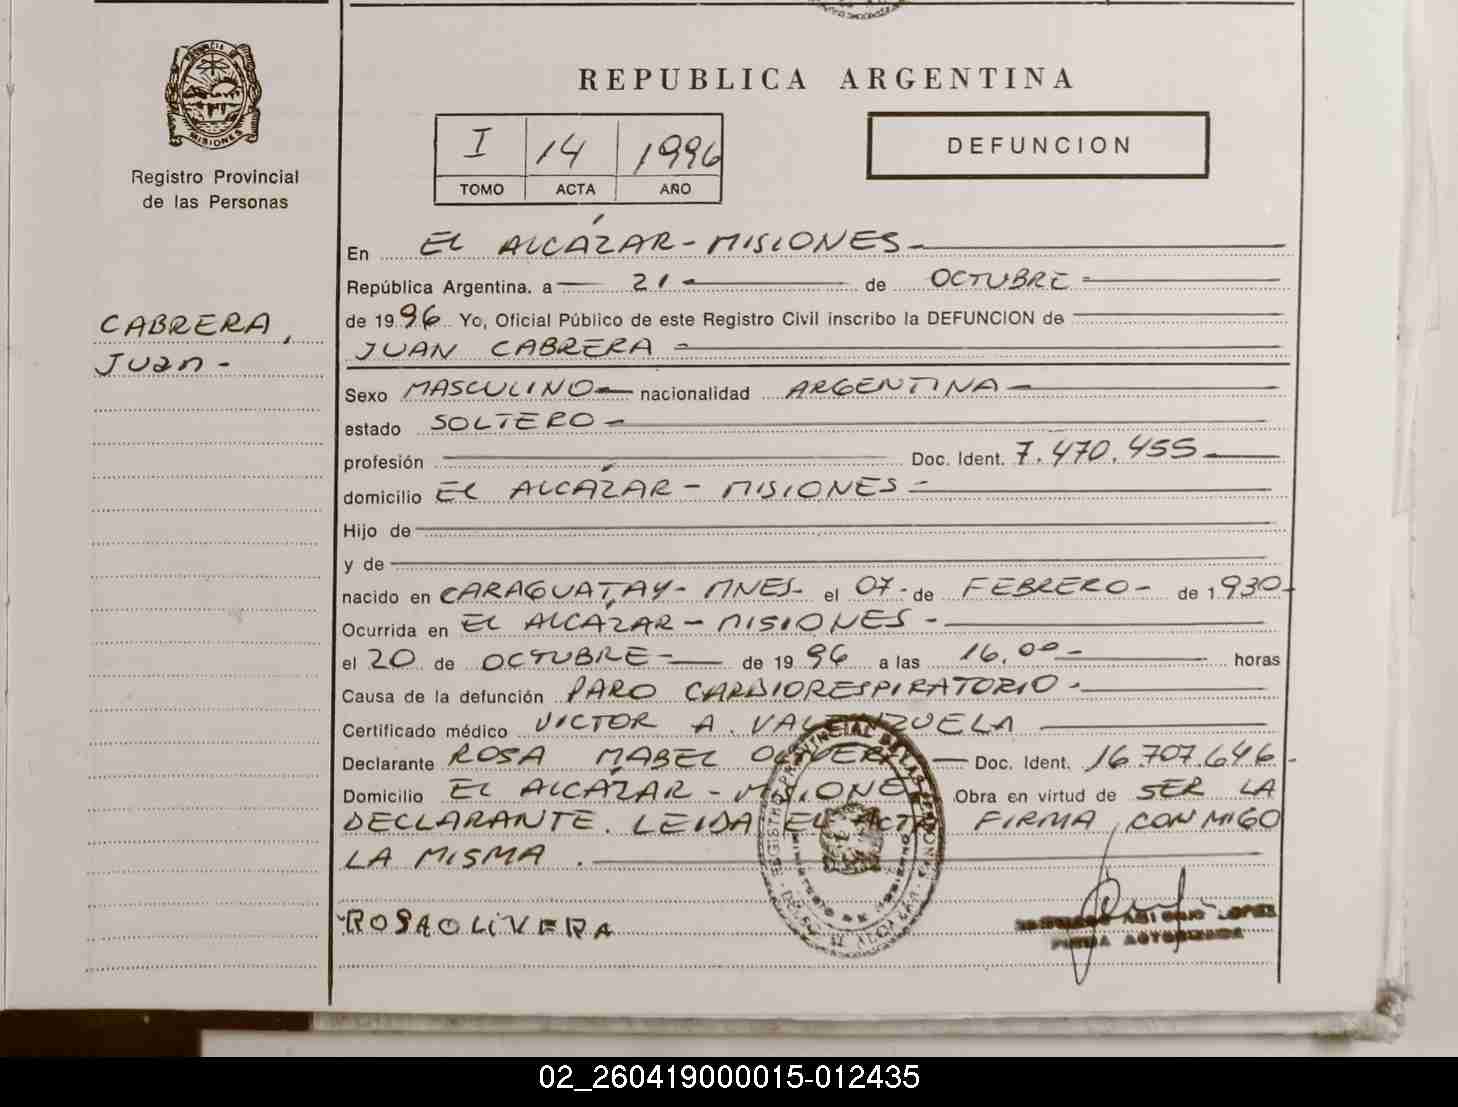 PROVINCIA DE
MISIONES
Registro Provincial
de las Personas
CABRERA,
Juan -
REPUBLICA ARGENTINA
I 14 1996
TOMO ACTA AÑO
DEFUNCION
En EL ALCÁZAR - MISIONES -
República Argentina, a 21 - de OCTUBRE -
de 1996 Yo, Oficial Público de este Registro Civil inscribo la DEFUNCION de
JUAN CABRERA -
Sexo MASCULINO - nacionalidad ARGENTINA -
estado SOLTERO -
profesión Doc. Ident. 7.470.455
domicilio EL ALCÁZAR - MISIONES -
Hijo de
y de
nacido en CARAGUATAY - MNES - el 07 - de FEBRERO - de 1930 -
Ocurrida en EL ALCÁZAR - MISIONES -
el 20 de OCTUBRE - de 1996 a las 16,00 - horas
Causa de la defunción PARO CARDIORESPIRATORIO -
Certificado médico VICTOR A. VALENZUELA
Declarante ROSA MABEL OLIVERA - Doc. Ident. 16.707.646 -
Domicilio EL ALCÁZAR - MISIONES Obra en virtud de SER LA
DECLARANTE. LEIDA EL ACTA FIRMA, CONMIGO
LA MISMA.
REGISTRO PROVINCIAL DE LAS PERSONAS
ROSA OLIVERA
ANTONIO LOPEZ
FIRMA AUTORIZADA
02_260419000015-012435